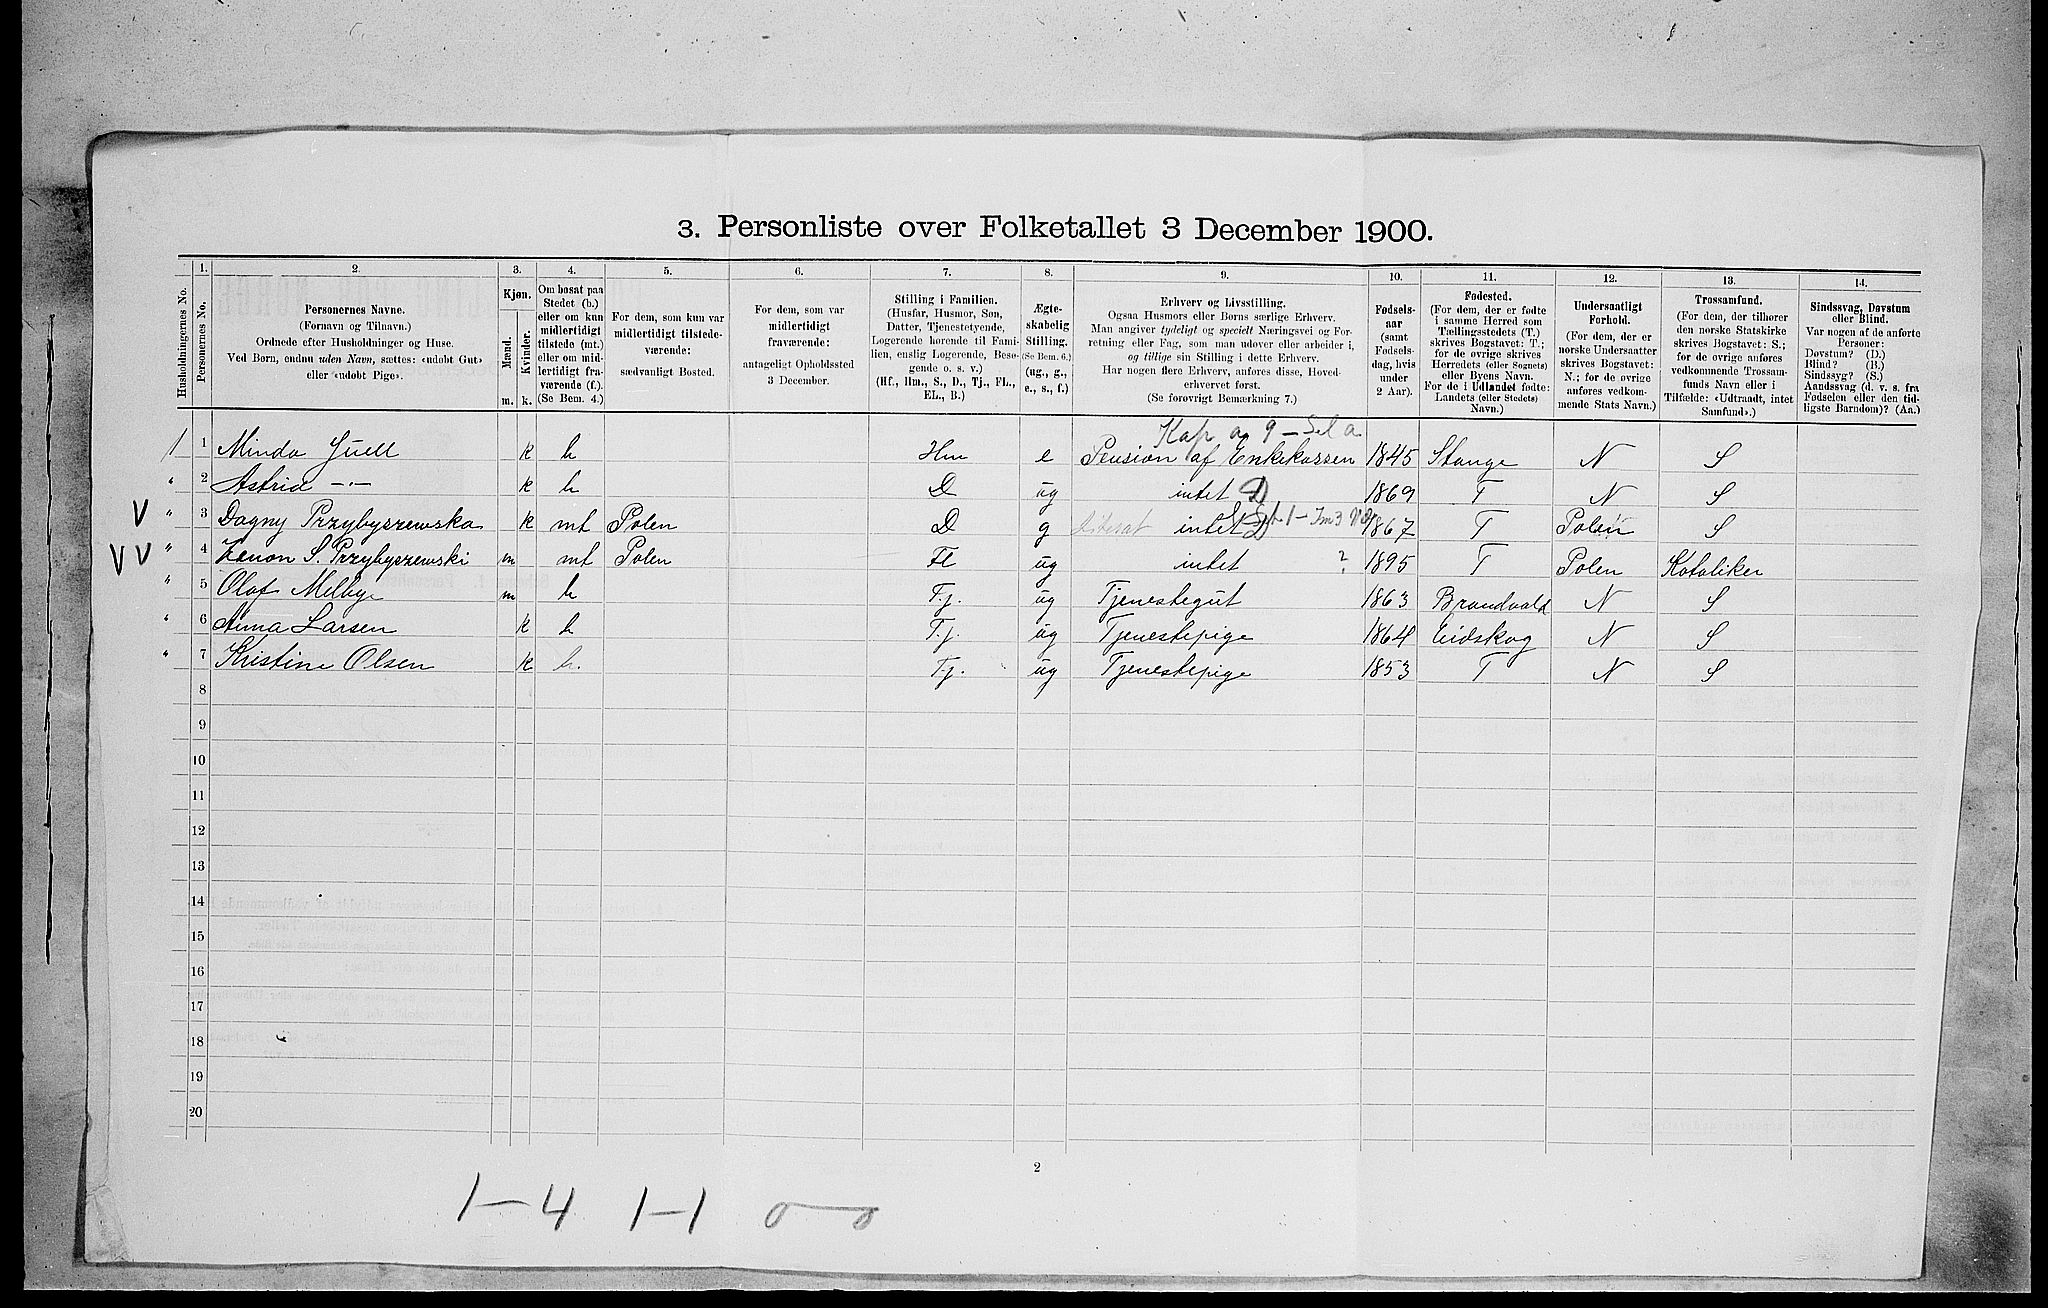 3. Personliste over Folketallet 3 December 1900.
Husholdningernes No.
1.
Personernes No.
2.
Personernes Navne.
(Fornavn og Tilnavn.)
Ordnede efter Husholdninger og Huse.
Ved Børn, endnu uden Navn, sættes: «udøbt Gut»
eller «udøbt Pige».
3.
Kjøn.
Mænd.
Kvinder.
m. k.
4.
Om bosat paa
Stedet (b.)
eller om kun
midlertidigt
tilstede (mt.)
eller om mid-
lertidigt fra-
værende (f.).
(Se Bem. 4.)
5.
For dem, som kun var
midlertidigt tilstede-
værende:
sædvanligt Bosted.
6.
For dem, som var
midlertidigt
fraværende:
antageligt Opholdssted
3 December.
7.
Stilling i Familien.
(Husfar, Husmor, Søn,
Datter, Tjenestetyende,
Logerende hørende til Fami-
lien, enslig Logerende, Besø-
gende o. s. v.)
(Hf., Hm., S., D., Tj., FL.,
EL., B.)
8.
Ægte-
skabelig
Stilling.
(Se Bem. 6.)
(ug., g.,
e., s., f.)
9.
Erhverv og Livsstilling.
Ogsaa Husmors eller Børns særlige Erhverv.
Man angiver tydeligt og specielt Næringsvei og For-
retning eller Fag, som man udøver eller arbeider i,
og tillige sin Stilling i dette Erhverv.
Har nogen flere Erhverv, anføres disse, Hoved-
erhvervet først.
(Se forøvrigt Bemærkning 7.)
10.
Fødsels-
aar
(samt
Fødsels-
dag, hvis
under
2 Aar).
11.
Fødested.
(For dem, der er fødte
i samme Herred som
Tællingsstedets (T.)
skrives Bogstavet: T.;
for de øvrige skrives
Herredets (eller Sognets)
eller Byens Navn.
For de i Udlandet fødte:
Landets (eller Stedets)
Navn.)
12.
Undersaatligt
Forhold.
(For dem, der er
norske Undersaatter
skrives Bogstavet:
N.; for de øvrige
anføres vedkom-
mende Stats Navn.)
13.
Trossamfund.
(For dem, der tilhører
den norske Statskirke
skrives Bogstavet: S.;
for de øvrige anføres
vedkommende Trossam-
funds Navn eller i
Tilfælde: «Udtraadt, intet
Samfund».)
14.
Sindssvag, Døvstum
eller Blind.
Var nogen af de anførte
Personer:
Døvstum? (D.)
Blind? (B.)
Sindssyg? (S.)
Aandssvag (d. v. s. fra
Fødselen eller den tid-
ligste Barndom)? (Aa.)
1 Minda Juell k b Hm e Pension af Enkekassen 1845 Stange N S
" 2 Astrid -"- k b D ug intet D 1869 T N S
V " 3 Dagny Przybyszewska k mt Polen D g intet 1867 T Polen S
VV " 4 Zenon S. Przybyszewski m mt Polen Fl ug intet ? 1895 T Polen Katoliker
" 5 Olaf Melbye m b Tj. ug Tjenestegut 1863 Brandvold N S
" 6 Anna Larsen k b Tj. ug Tjenestepige 1864 Eidskog N S
" 7 Kristine Olsen k b. Tj. ug Tjenestepige 1853 T N S
8
9
10
11
12
13
14
15
16
17
18
19
20
2
1-4 1-1 0-0